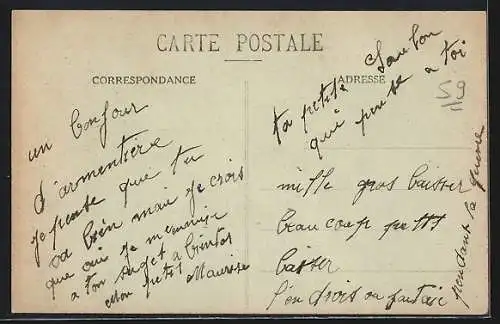 CARTE POSTALE
CORRESPONDANCE
ADRESSE
59
un bonjour
d'armentière
je pense que tu
va bien moi je crois
que oui je m'ennuie
a ton sujet a bientot
mon petit
Maurice
ta petite
qui pense a toi
mille gros baisser
beaucoup petts
baisser
l'endrois ou j'utai
pendant la guerre